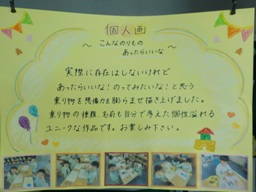 個人画
～こんなのりもの
あったらいいな～
実際に存在はしないけれど
あったらいいな！のってみたいな！と思う
乗り物を想像力を膨らませ描き上げました。
乗り物の種類、名前も自分で考えた個性溢れる
ユニークな作品です。お楽しみ下さい。